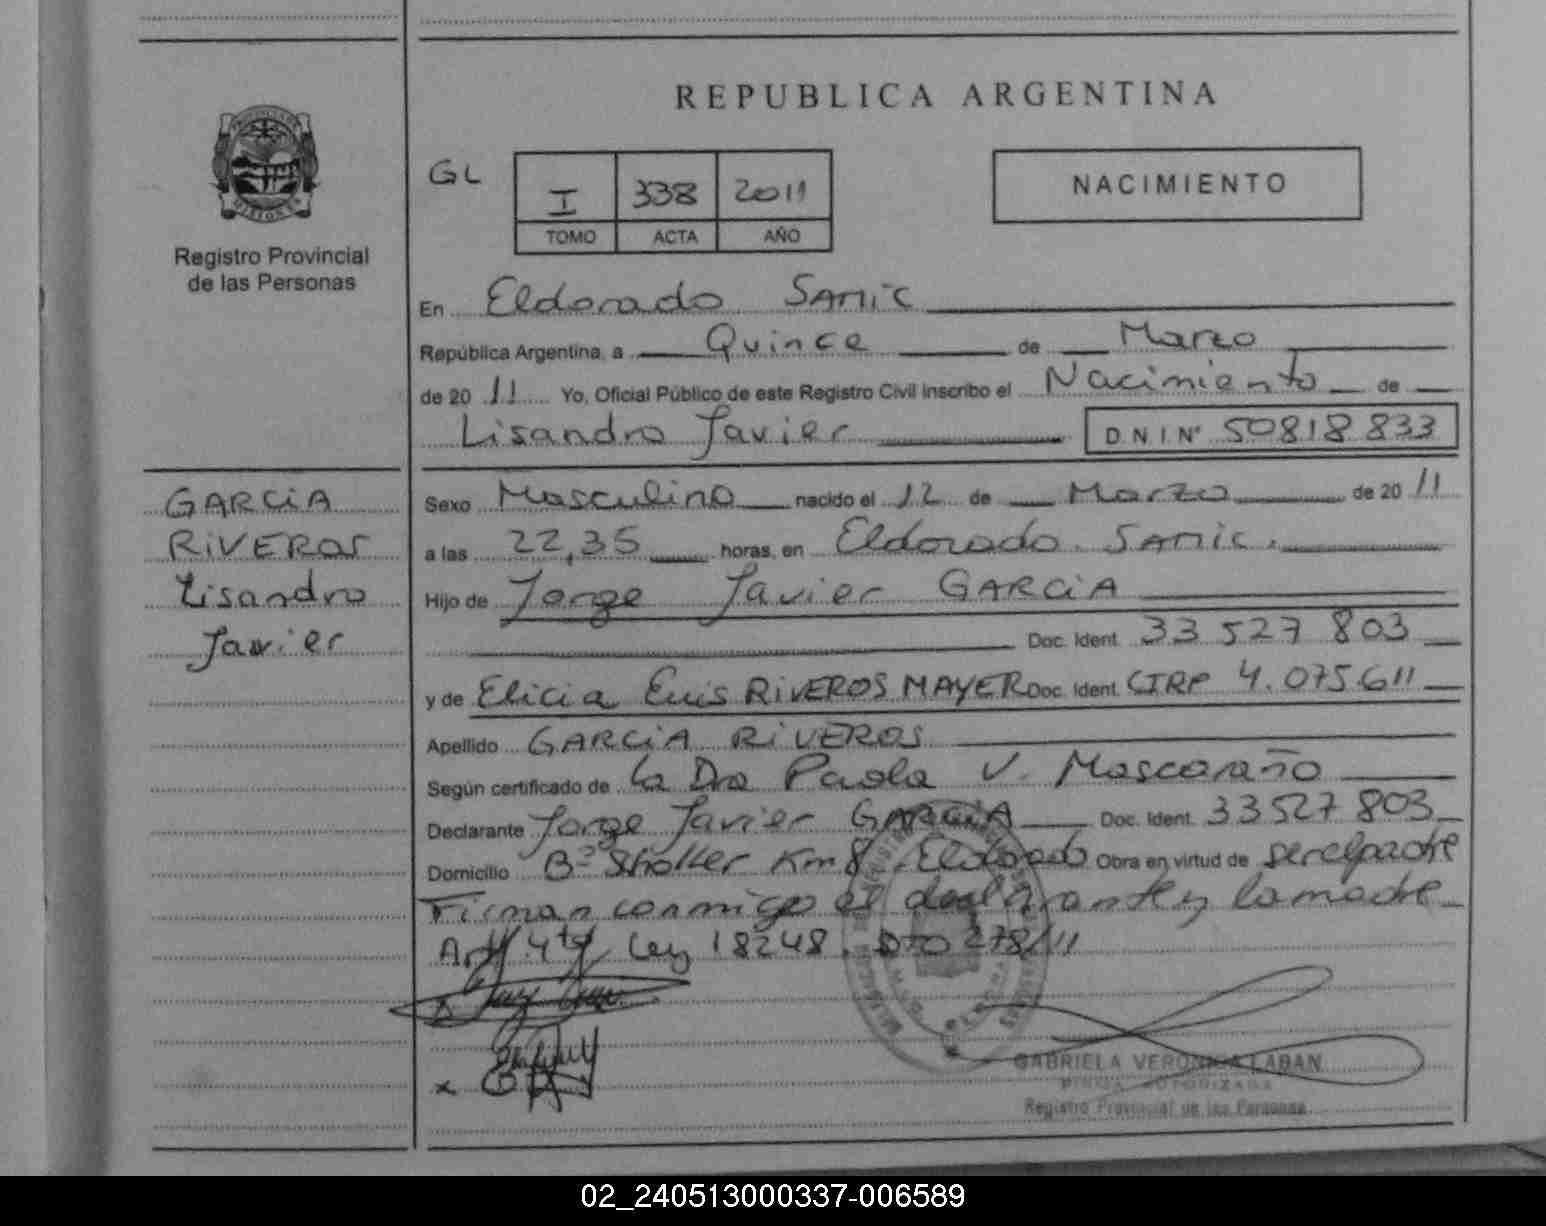 REPUBLICA ARGENTINA
PROVINCIA DE MISIONES
Registro Provincial
de las Personas
GL
I 338 2011
TOMO ACTA AÑO
NACIMIENTO
En Eldorado SAMiC
República Argentina, a Quince de Marzo
de 20 11 Yo, Oficial Público de este Registro Civil inscribo el Nacimiento de
Lisandro Javier D.N.I.Nº 50818833
GARCiA
RiVEROS
Lisandro
Javier
Sexo Masculino nacido el 12 de Marzo de 20 11
a las 22,35 horas, en Eldorado SAMic.
Hijo de Jorge Javier GARCiA
Doc. Ident. 33 527 803
y de Elicia RiVEROS MAYER Doc. Ident. CIRP 4.075611
Apellido GARCiA RiVEROS
Según certificado de la Dra Paola V. Mascaraño
Declarante Jorge Javier GARCiA Doc. Ident. 33527 803
Domicilio Bº Km 8 Eldorado Obra en virtud de ser el padre
Firman conmigo el declarante y la madre
Ley 18248. DTO 278/11
x
GABRIELA VERONICA LABAN
FIRMA AUTORIZADA
Registro Provincial de las Personas
02_240513000337-006589